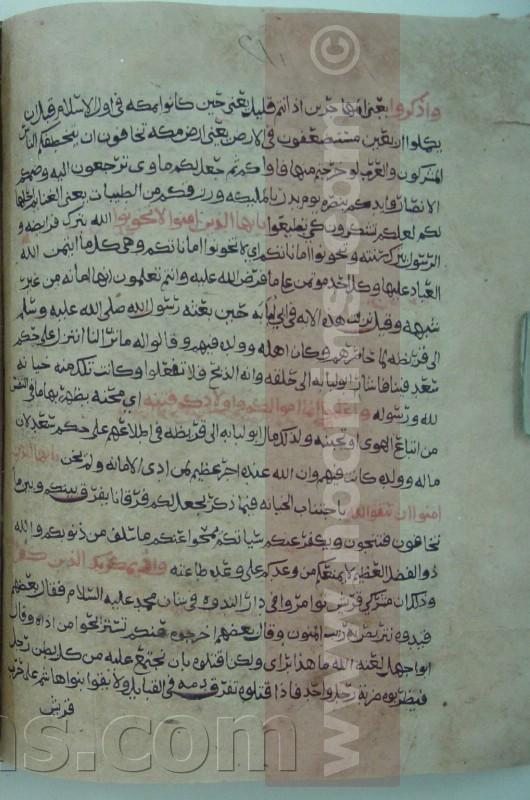 واذكروا يعني المهاجرين اذ انتم قليل يعني حين كانوا بمكه في اول الاسلام قبل ان
يكملوا اربعين مستضعفون في الارض يعني ارض مكه تخافون ان يتخطفكم الناس
المشركون والعرب لو خرجتم منها فاواكم ثم جعل لكم ماوى ترجعون اليه وضمكم
الانصار وايدكم بنصره يوم بدر بالمليكه ورزقكم من الطيبات يعني الغنايم احلها
لكم لعلكم تشكرون كي تطيعوا يا ايها الذين امنوا لا تخونوا الله بترك فرايضه و
الرسول بترك سنته وتخونوا اماناتكم اي لا تخونوا اماناتكم وهي كل ما ايتمن الله
العباد عليها وكل احد موتمن على ما فرض الله عليه وانتم تعلمون انها امانه من غير
شبهه وقيل نزلت هذه الايه في ابي لبابه حين بعثه رسول الله صلى الله عليه وسلم
الى قريظه لما حاصرهم وكان اهله وولده فيهم وقالوا له ما ترى لنا اننزل على حكم
سعد فينا فاشار ابو لبابه الى حلقه وانه الذبح فلا تفعلوا وكانت تلك منه خيانه
لله ورسوله واعلموا انما اموالكم واولادكم فتنه اي محنه يظهر بها ما في النفس
من اتباع الهوى او تجنبه ولذلك مال ابو لبابه الى قريظه في اطلاعهم على حكم سعد لان
ماله وولده كانت فيهم وان الله عنده اجر عظيم لمن ادى الامانه ولم يخن يا ايها الذين
امنوا ان تتقوا الله باجتناب الخيانه فيما ذكر يجعل لكم فرقانا يفرق بينكم وبين ما
تخافون فتنجون ويكفر عنكم سياتكم يمحوا عنكم ما سلف من ذنوبكم والله
ذو الفضل العظيم وعدكم على وعد طاعته واذ يمكر بك الذين كفروا
وذلك ان مشركي قريش توامروا في دار الندوه في شان محمد عليه السلام فقال بعضهم
قيدوه نتربص به ريب المنون وقال بعضهم اخرجوه عنكم تستريحوا من اذاه وقال
ابو جهل لعنه الله ما هذا براي ولكن اقتلوه بان يجتمع عليه من كل بطن رجل
فيضربوه ضربة رجل واحد فاذا قتلوه تفرق دمه في القبايل ولا يقوا بنوا هاشم على حرب
قريش
© www.
ns.com